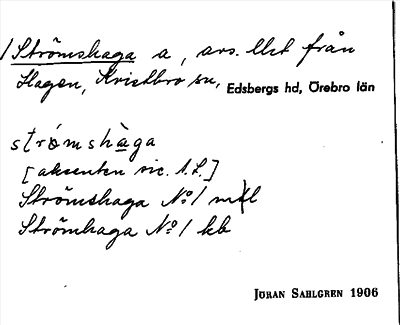 / Strömshaga a, avs. llet från
Hagen, Kvistbro sn, Edsbergs hd, Örebro län
strómshàga
[aksenten sic. J.S.]
Strömshaga No 1
Strömhaga No 1 kb
JÖRAN SAHLGREN 1906